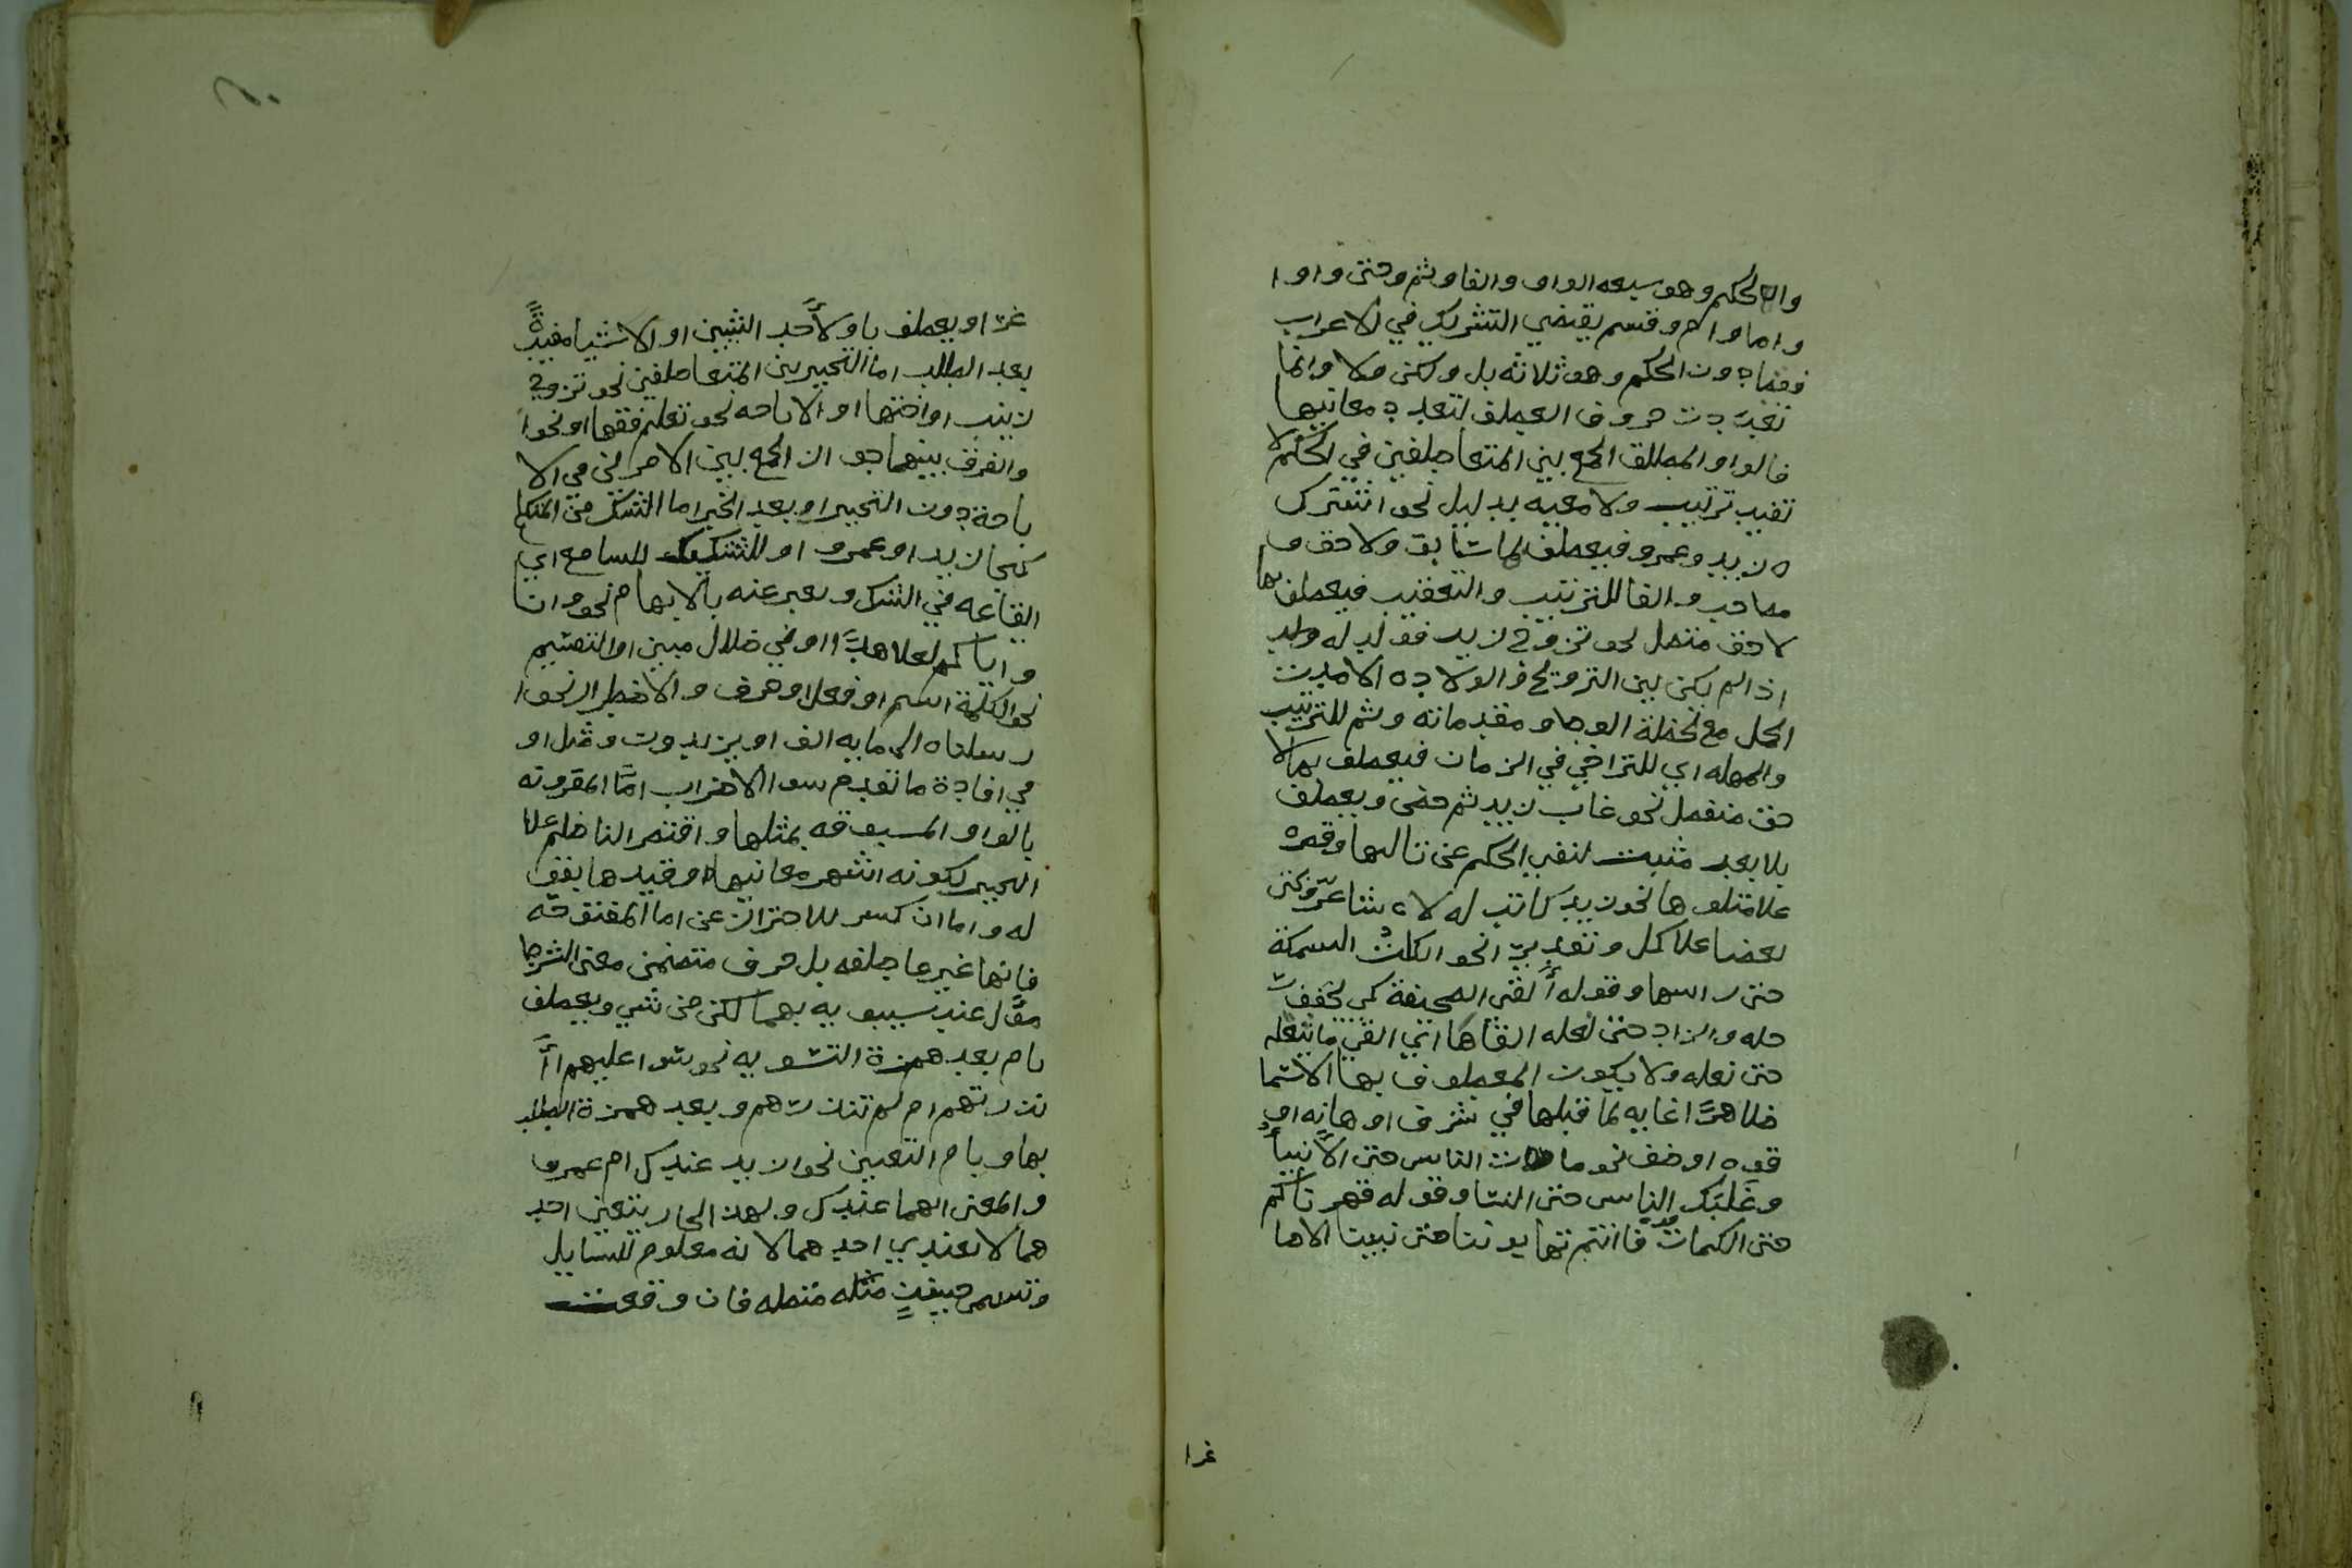 والحكم وهو سبعه الواو والفا وثم وحتى واو ا
واما وام وقسم يقتضي التشريك في الاعراب
فقط دون الحكم وهو ثلاثه بل ولكن ولا وانما
تعددت حروف العطف لتعدد معانيها
فالواو لمطلق الجمع بين المتعاطفين في الحكم لا
تفيد ترتيب ولا معيه بدليل نحو اشترك
زيد وعمرو فيعطف بها سابق ولاحق و
مصاحب والفا للترتيب والتعقيب فيعطف بها
لاحق متصل نحو تزوج زيد فولد له ولد
اذا لم يكن بين التزويج والولاده الا مدت
الحمل مع لحظة الوطا ومقدماته وثم للترتيب
والمهله اي للتراخي في الزمان فيعطف بها لا
حق منفصل نحو غاب زيد ثم حضر ويعطف
بلا بعد مثبت لنفي الحكم عن تاليها وقصره
علا متلوها نحو زيد كاتب له لا شاعر وبحتى
بعضا علا كل وتقديرا نحو اكلت السمكة
حتى راسها وقوله القى الصحيفة كي يخفف ر
حله والزاد حتى نعله القاها اي القى ما يثقله
حتى نعله ولا يكون المعطوف بها الا اسما
ظاهرا غايه لما قبلها في شرف او هانه او
قوه او ضعف نحو مات الناس حتى الانبيا
وغلبك الناس حتى النسا وقوله قهرناكم
حتى الكمات فانتم تهابوننا حتى نبينا الاصا
غرا
غرا ويعطف باو لاحد الشيين او الاشيا مفيدة
بعد الطلب اما التخيير بين المتعاطفين نحو تزوج
زينب او اختها او الاباحه نحو تعلم فقها او نحوا
والفرق بينهما جواز الجمع بين الامرين في الا
باحة دون التخيير او بعد الخبر اما الشك من المتكلم
كجا زيد او عمرو او للتشكيك للسامع اي
ايقاعه في الشك ويعبر عنه بالابهام نحو وانا
واياكم لعلا هدا او في ضلال مبين او التقسيم
نحو الكلمة اسم او فعل او حرف والاضطراب نحوا
رسلناه الى مايه الف او يزيدون ومثل او
في افادة ما تقدم سوا الاضراب اما المقرونه
بالواو المسبوقه بمثلها واقتصر الناظم علا
التخيير لكونه اشهر معانيها وقيدها بقو
له واما ان كسر للاحتراز عن اما المفتوحه
فانها غير عاطفه بل حرف متضمن معنى الشرط
عند سيبويه بمهما لكن من شي ويعطف
بام بعد همزة التسويه نحو سوا عليهم اا
نذرتهم ام لم تنذرهم وبعد همزة الطلب
بها وبام التعيين نحو ازيد عندك ام عمرو
والمعنى ايهما عندك و الجار بتعين احد
هما لا بعندي احدهما لانه معلوم للسايل
وتسمى حينيذ متصله فان وقعت